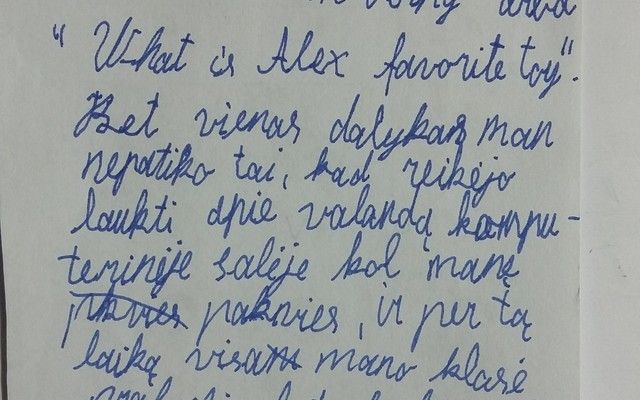 arba
"What is Alex favorite toy".
Bet vienas dalykas man
nepatiko tai, kad reikėjo
laukti apie valandą kompu-
terinėje salėje kol manę
pakvies, ir per tą
laiką visa mano klasė